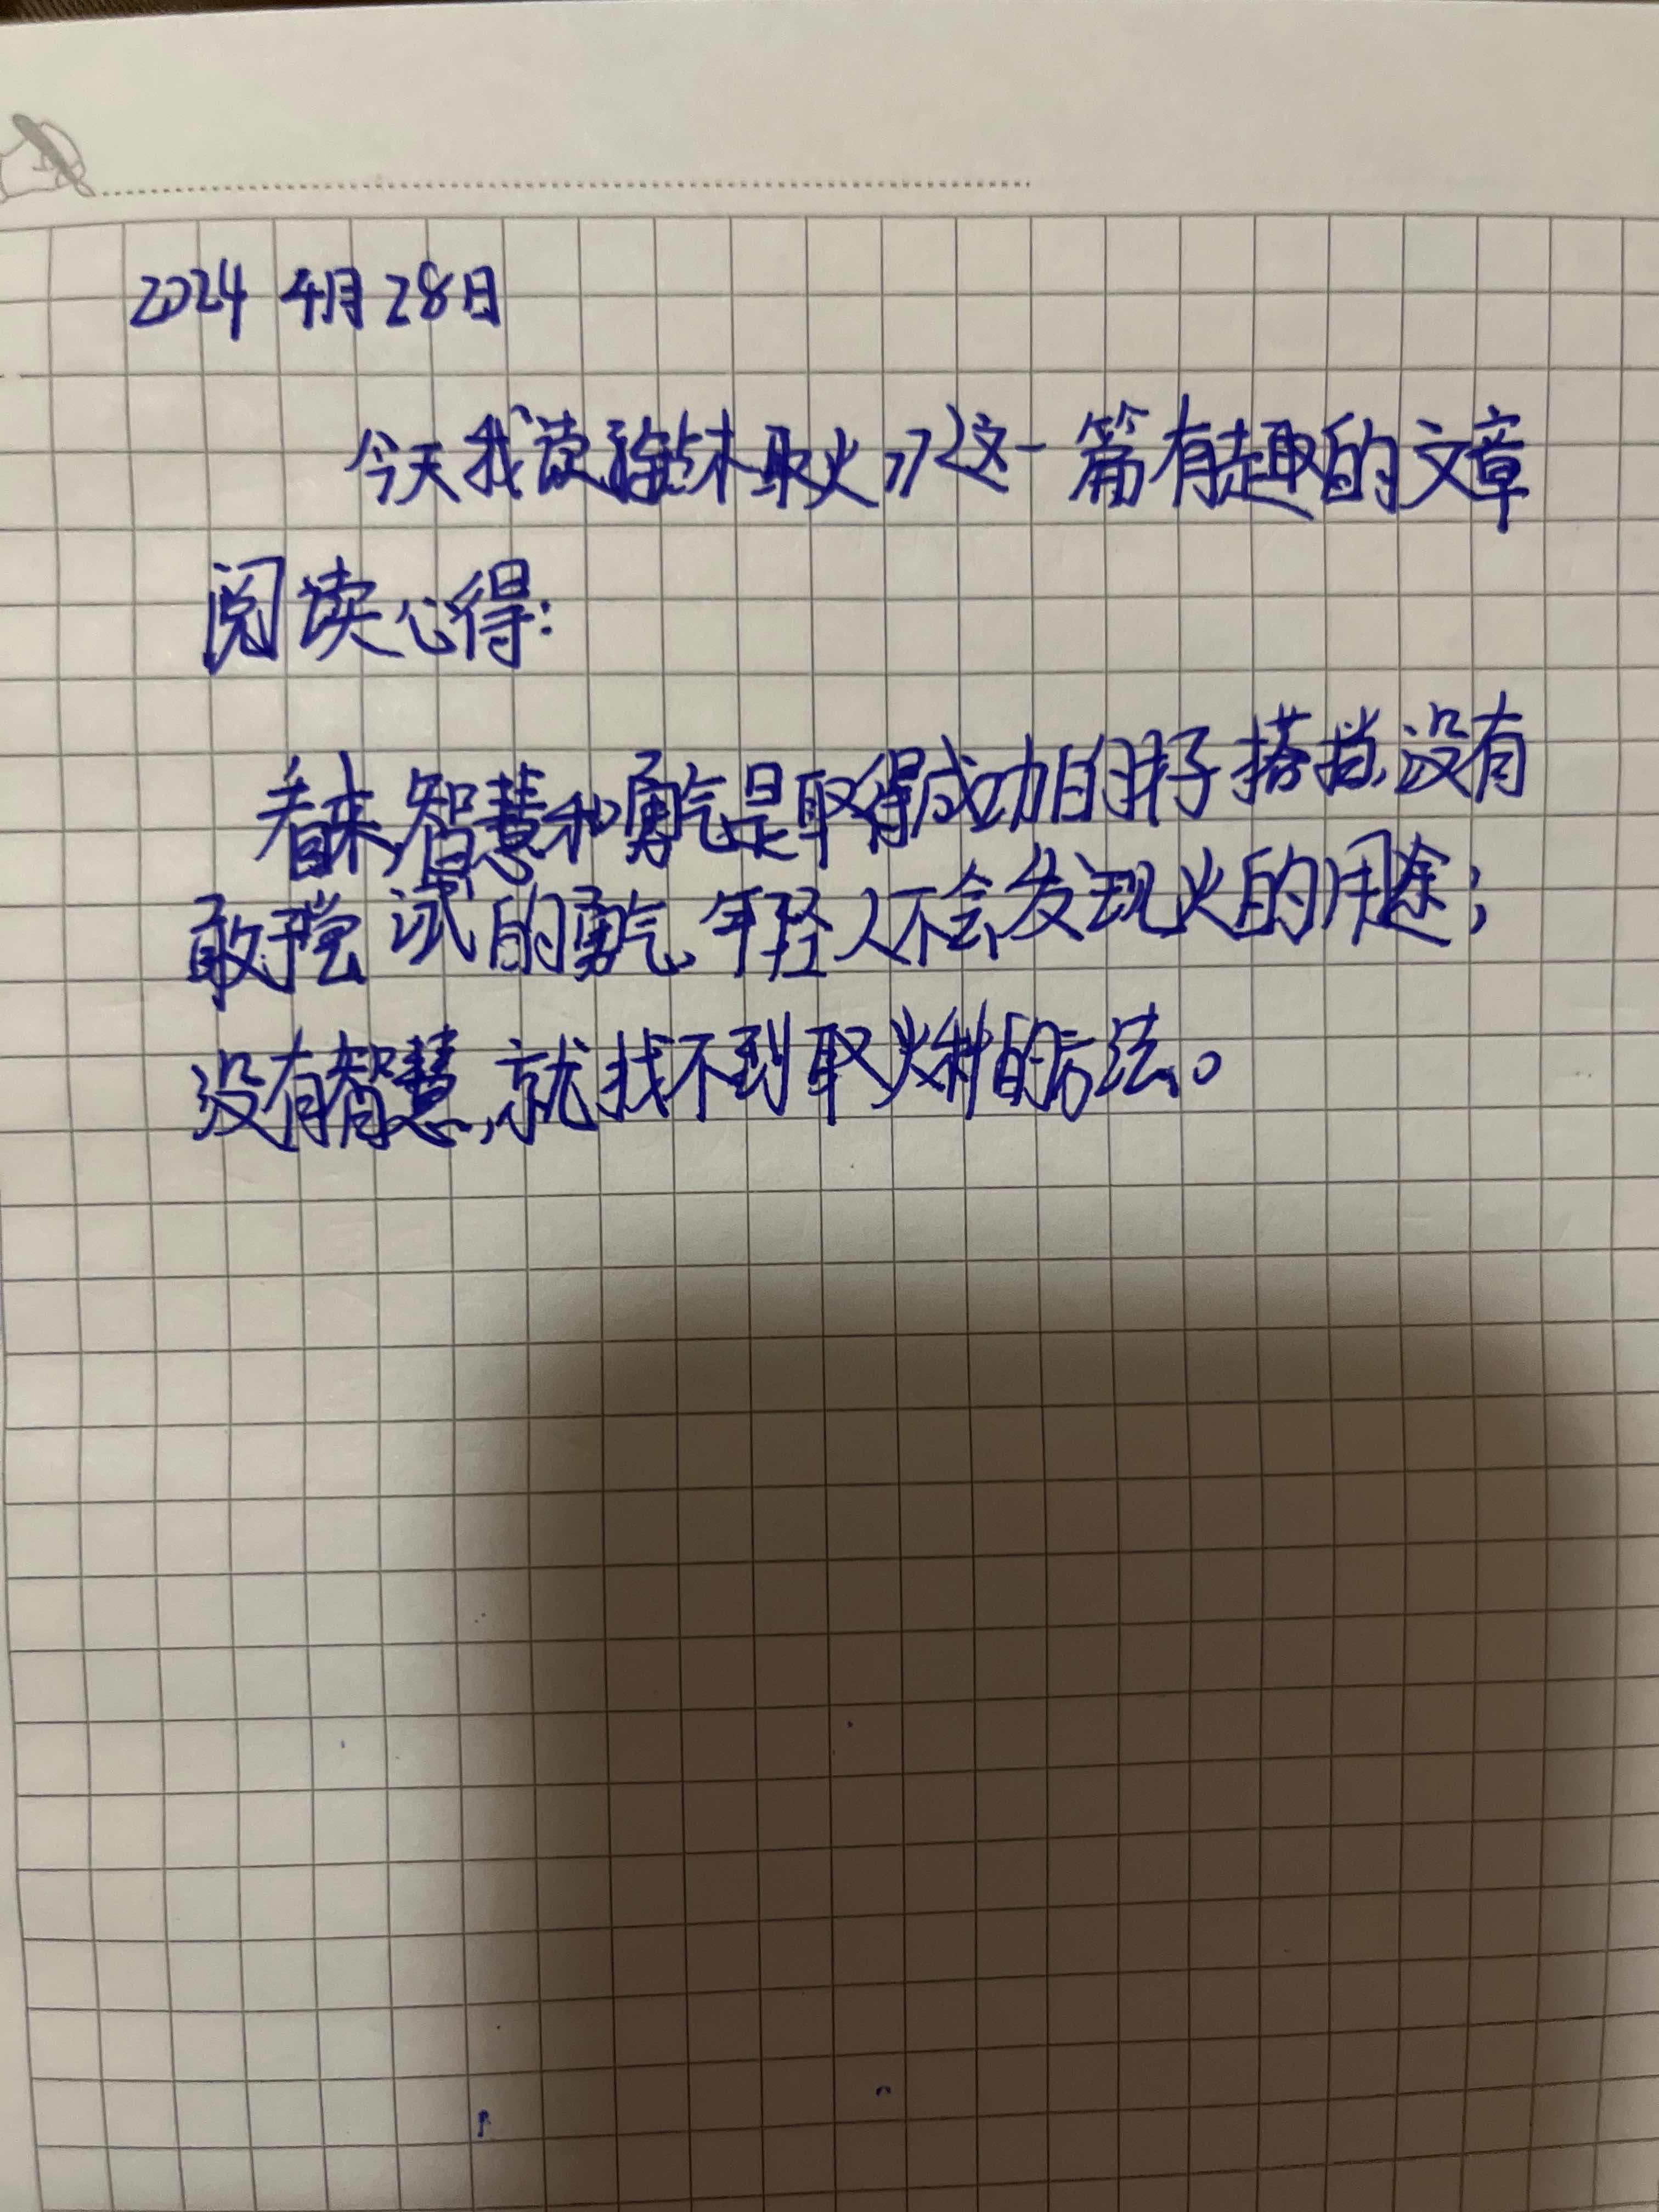 2024 4月28日
今天我读《钻木取火》这一篇有趣的文章
阅读心得:
看来,智慧和勇气是取得成功的好搭挡,没有
敢于尝试的勇气,年轻人不会发现火的用途;
没有智慧,就找不到取火种的方法。